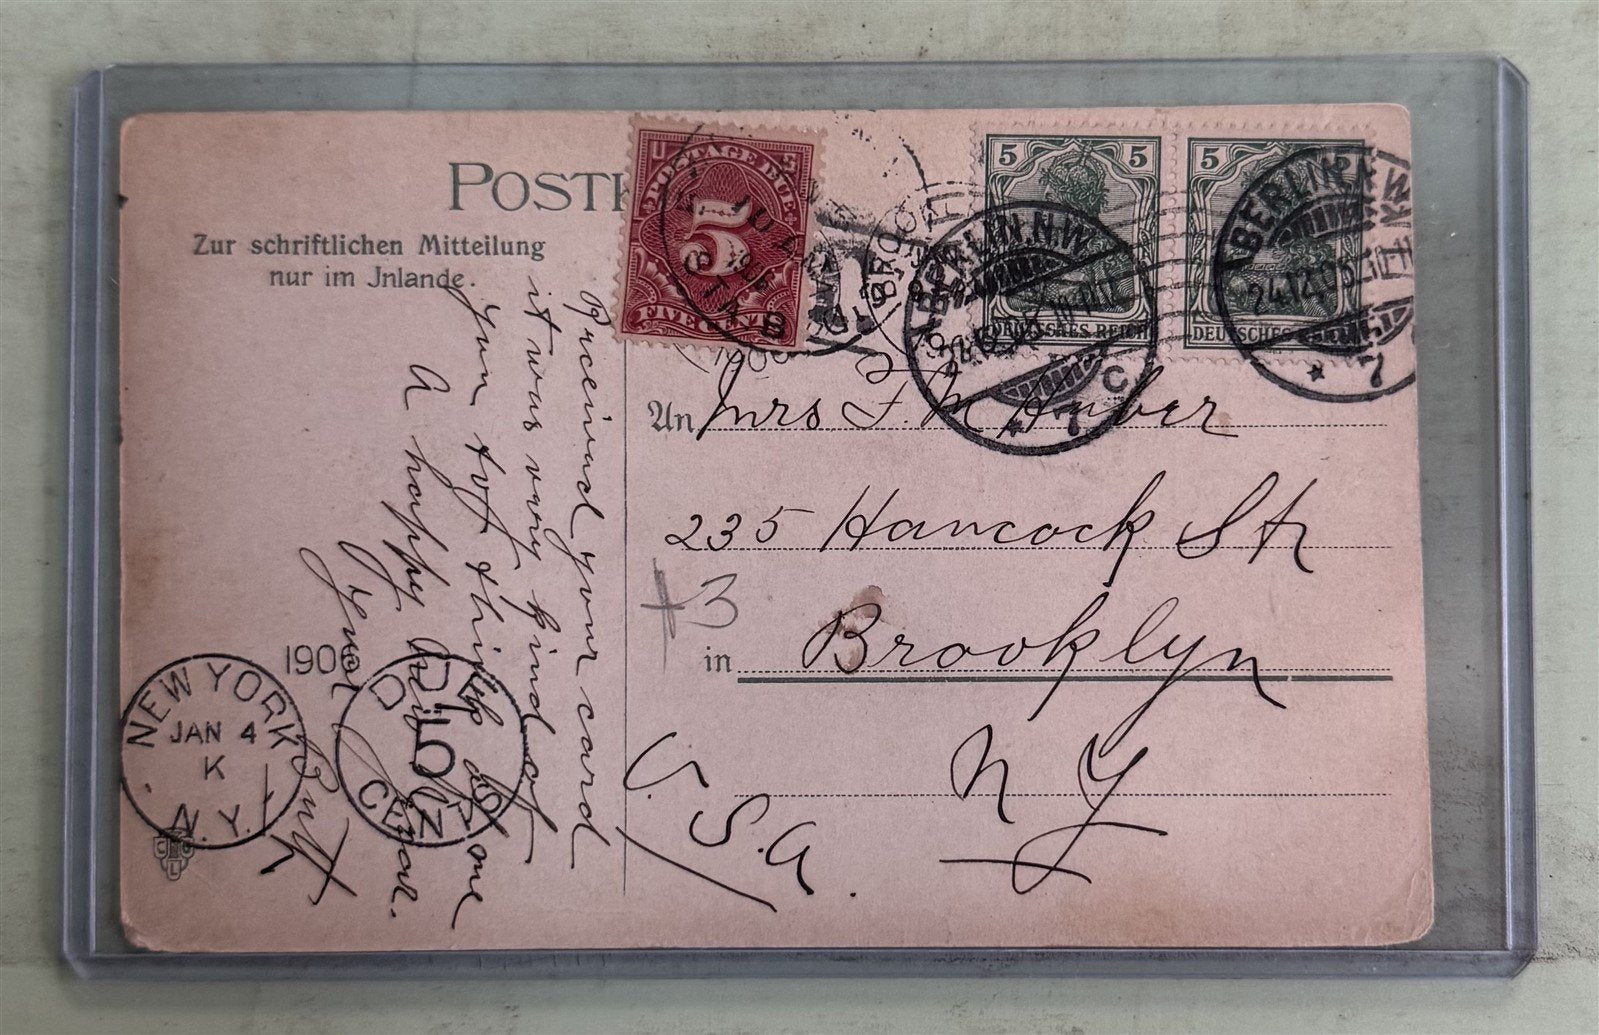 POSTK
Zur schriftlichen Mitteilung
nur im Jnlande.
U S
POSTAGE DUE
5
FIVE CENTS
5 5
DEUTSCHES REICH
5
DEUTSCHES
BERLIN.N.W
C
* 7
BERLIN
24.12.05
* 7
An Mrs F. M Huber
235 Hancock Str
+3
in Brooklyn
N Y
U.S.A.
Received your card
it was very kind of
you to think of me
A happy new year.
1906
NEW YORK
JAN 4
K
N.Y.
DUE
10
CENTS